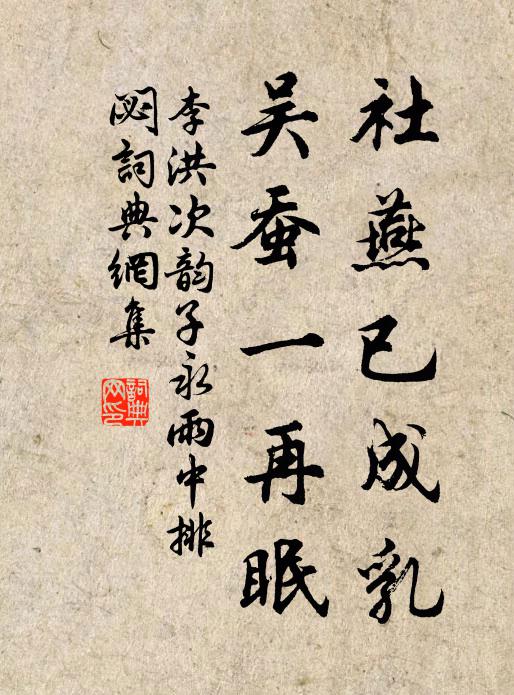 社燕已成乳
吴蚕一再眠
李洪次韵子永雨中排
闷詞典網集
詞典
网印